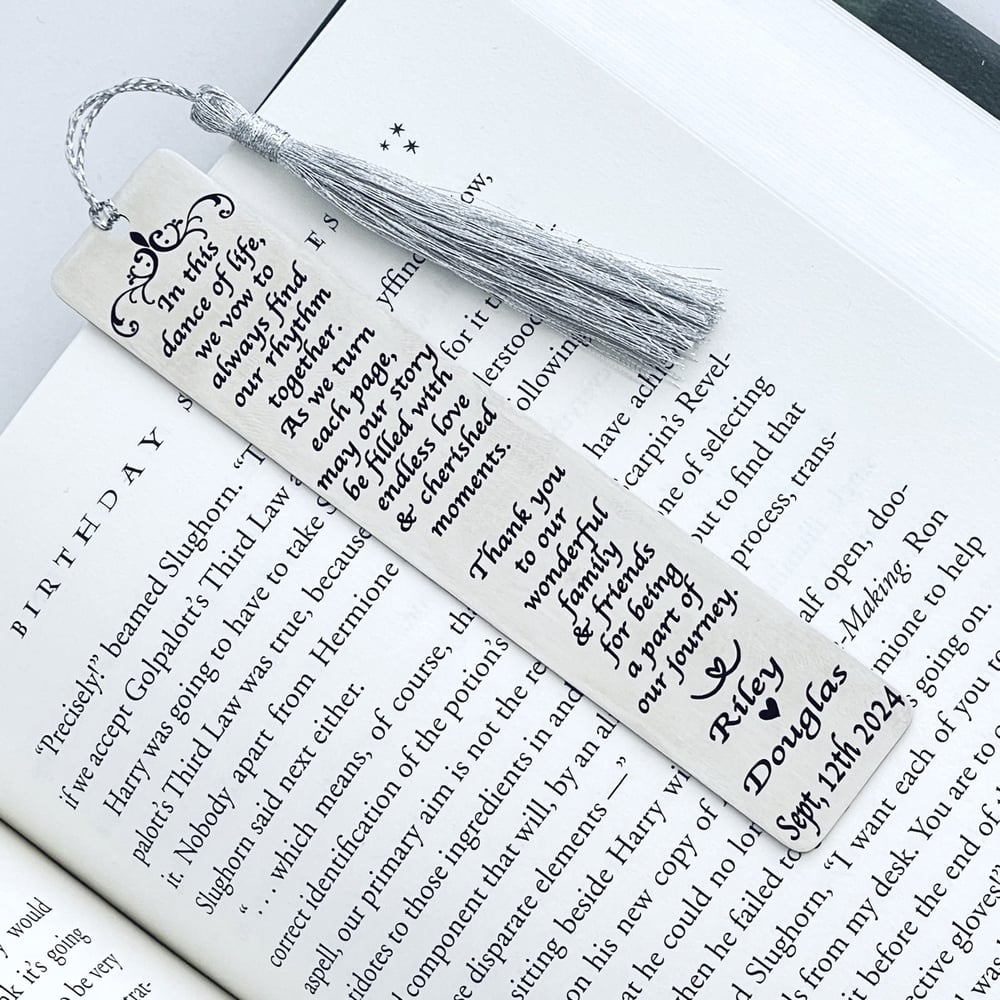 In this
dance of life,
we vow to
always find
our rhythm
together.
As we turn
each page,
may our story
be filled with
endless love
& cherished
moments.
Thank you
to our
wonderful
family
& friends
for being
a part of
our journey.
Riley
Douglas
Sept, 12th 2024
BIRTHDAY
ES
ow,
yffind
for it
lerstood
ollowing
have
carpin's Revel-
ne of selecting
out to find that
process, trans-
alf open, doo-
-Making. Ron
mione to help
s going on.
"Precisely!" beamed Slughorn. "T
if we accept Golpalott's Third Law a
Harry was going to have to take S
palott's Third Law was true, because
it. Nobody apart from Hermione
Slughorn said next either.
". . . which means, of course, th
correct identification of the potion's
aspell, our primary aim is not the re
idotes to those ingredients in and
component that will, by an al
se disparate elements —"
sitting beside Harry wi
on his new copy of
at he could no lon
when he failed to
d Slughorn, "I want each of you t
s from my desk. You are to
it before the end of
ctive gloves
y would
k it's going
o be very
trat-